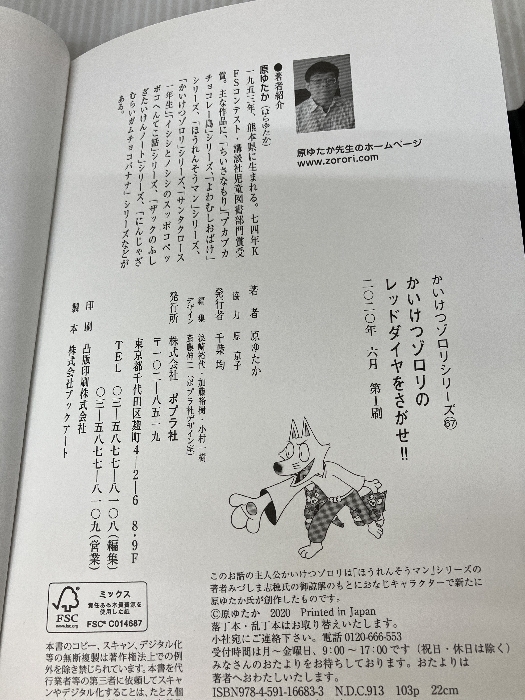 ●著者紹介
原ゆたか(はらゆたか)
一九五三年、熊本県に生まれる。七四年K
FSコンテスト・講談社児童図書部門賞受
賞。主な作品に、「ちいさなもり」「プカプカ
チョコレー島」シリーズ、「よわむしおばけ」
シリーズ、「ほうれんそうマン」シリーズ、
「かいけつゾロリ」シリーズ、「サンタクロース
一年生」「イシシとノシシのスッポコペッ
ポコへんてこ話」シリーズ、「ザックのふし
ぎたいけんノート」シリーズ、「にんじゃざ
むらいガムチョコバナナ」シリーズなどが
ある。
原ゆたか先生のホームページ
www.zorori.com
かいけつゾロリシリーズ67
かいけつゾロリの
レッドダイヤをさがせ!!
二〇二〇年 六月 第1刷
著者 原ゆたか
協力 原 京子
発行者 千葉 均
編集
デザイン
発行所 株式会社 ポプラ社
〒一〇二-八五一九
東京都千代田区麹町4-2-6 8・9F
TEL 〇三-五八七七-八一〇八(編集)
〇三-五八七七-八一〇九(営業)
印刷 凸版印刷株式会社
製本 株式会社ブックアート
このお話の主人公かいけつゾロリは「ほうれんそうマン」シリーズの
著者みづしま志穂氏の御諒解のもとにおなじキャラクターで新たに
原ゆたか氏が創作したものです。
©原ゆたか 2020 Printed in Japan
落丁本・乱丁本はお取り替えいたします。
小社宛にご連絡下さい。電話 0120-666-553
受付時間は月~金曜日、9:00~17:00です(祝日・休日は除く)
みなさんのおたよりをお待ちしております。おたよりは
著者へおわたしいたします。
ISBN978-4-591-16683-3 N.D.C.913 103p 22cm
FSC
www.fsc.org
ミックス
責任ある木質資源を
使用した紙
FSC® C014687
本書のコピー、スキャン、デジタル化
等の無断複製は著作権法上での例
外を除き禁じられています。本書を
代行業者等の第三者に依頼してスキャ
ンやデジタル化することは、たとえ個